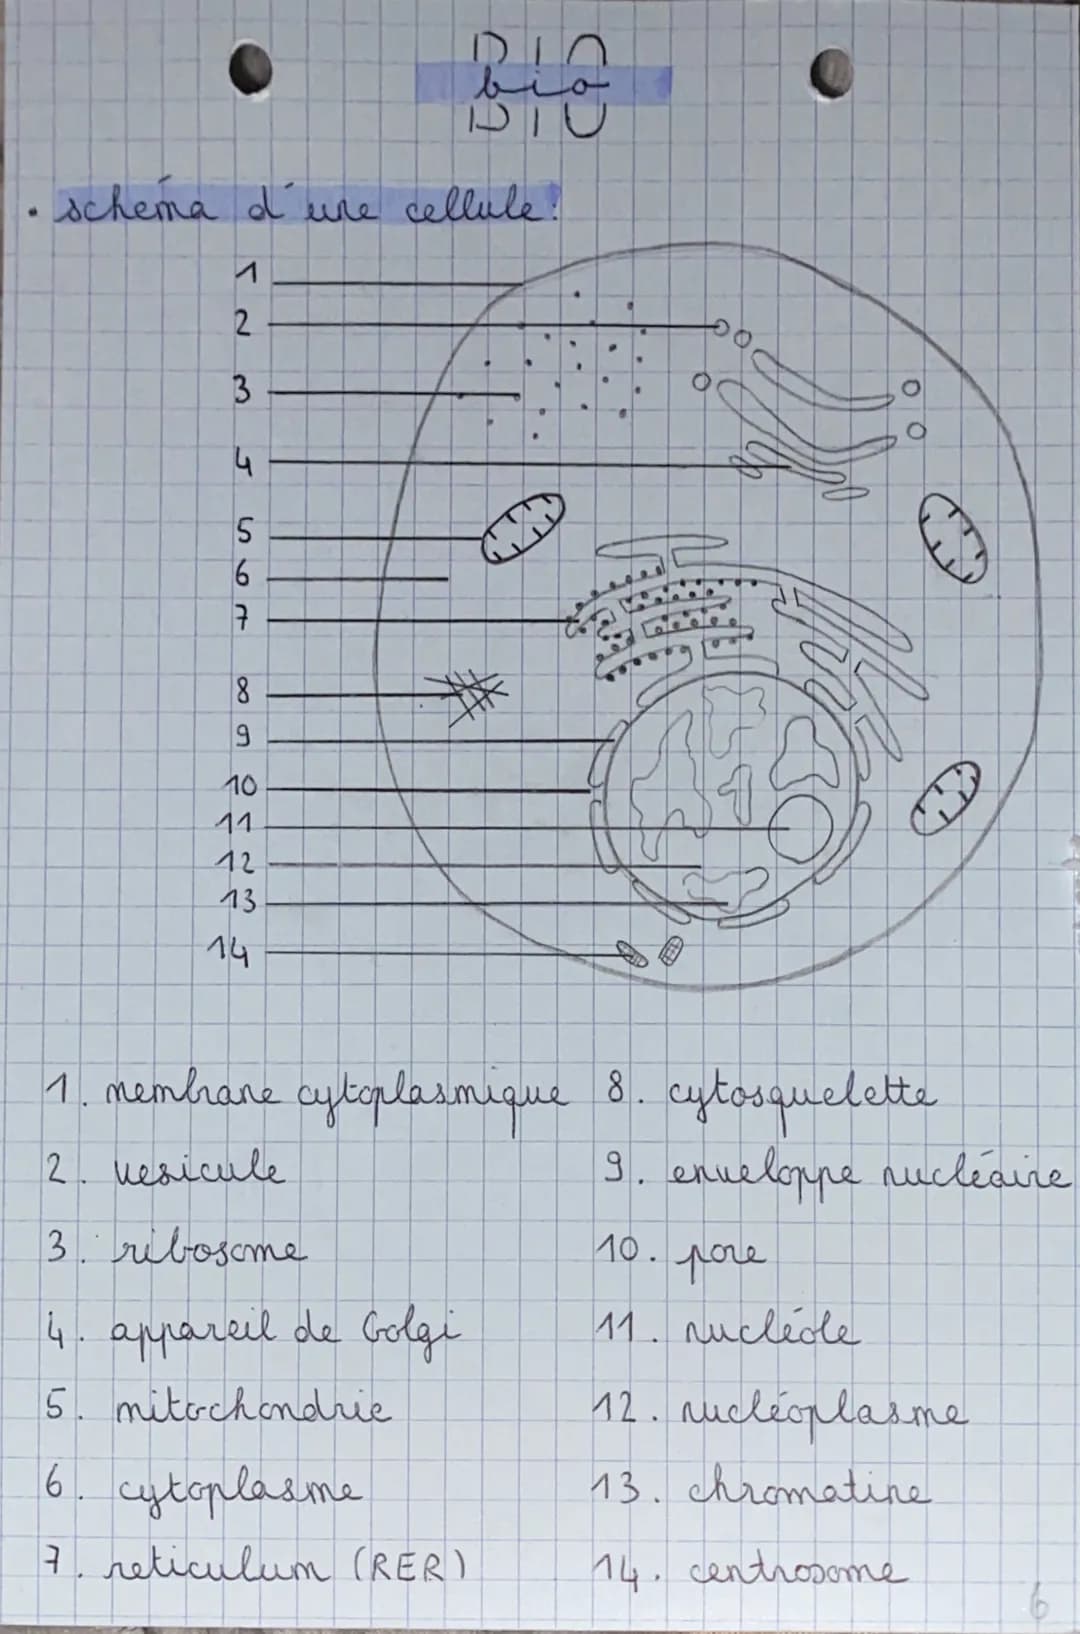 BIO
bio
BIO
• schéma d'une cellule:
1
2
3
4
5
6
7
8
9
10
11
12
13
14
1. membrane cytoplasmique
2. vesicule
3. ribosome
4. appareil de Golgi
5. mitochondrie
6. cytoplasme
7. reticulum (RER)
8. cytosquelette
9. enveloppe nucléaire
10. pore
11. nucléole
12. nucléoplasme
13. chromatine
14. centrosome
6